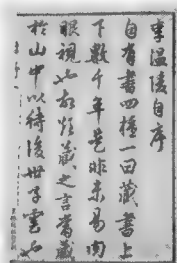 李温陵自序
自有書四種一曰藏書上
下數千年是非未易肉
眼視也故欲藏之言當藏
於山中以待後世子雲也